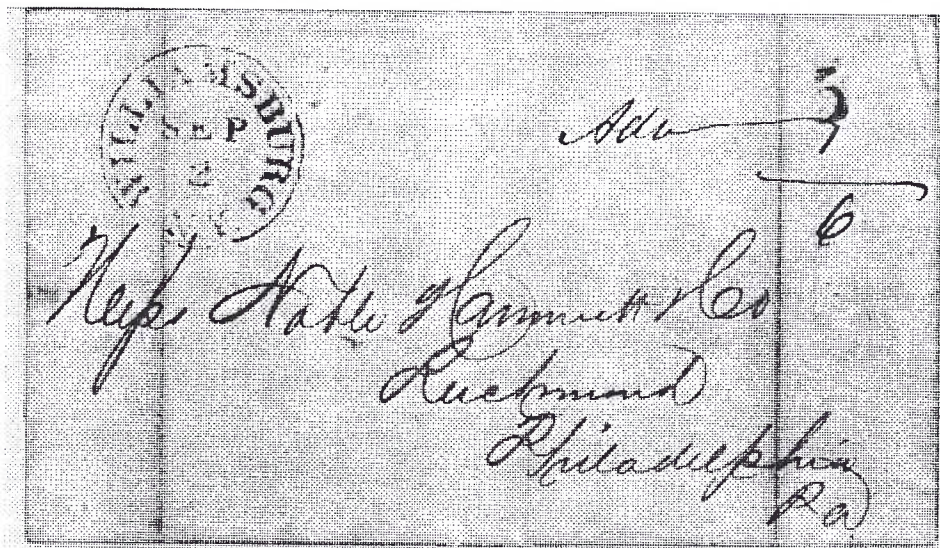 WILLIAMSBURG
SEP
2
Adv 5
6
Noble Hammett & Co
Richmond
Philadelphia
Pa